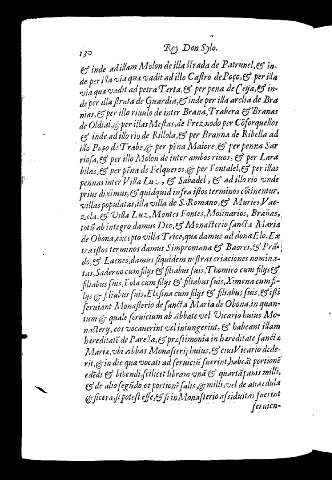 130 Rey Don Sylo.
& inde ad illam Molon de illa strada de Patrunel, & in-
de per illa via qua vadit ad illo Castro de Poço, & per illa
via qua vadit ad petra Terta, & per pena de Ceija, & in-
de per illa strata de Guardia, & inde per illa arelia de Bra
nias, & per illo riuulo de inter Brana, Trabera & Branas
de Oldial, & per illas Mestas de Freznedo per Cosorquellos
& inde ad illo rio de Rillola, & per Branna de Ribella ad
illo Poço de Trabe, & per pēna Maiore, & per penna Sar
riosa, & per illo Molon de inter ambos riuos, & per Lara
bilas, & per pēna de Felgueros, & per Fontalel, & per illas
pennas inter Villa Luz, & Sabadel, & ad illo rio unde
prius diximus, & quidquid infra istos terminos cōtinentur,
villas populatas, illa villa de S. Romano, & Muries, Vae-
zela, & Villa Luz, Montes Fontes, Molinarios, Brañas,
totū ab integro damus Deo, & Monasterio sanctæ Maria
de Obona, excepto villa Trice, qua damus ad dona Fla. Ex
tra istos terminos damus Sampromana & Baores, & Pra-
do, & Laenes, damus siquidem nostras criationes nomina-
tas, Saderno cum filijs & filiabus suis, Thomiro cum filijs &
filiabus suis, Fola cum filijs & filiabus suis, Ximena cum fi-
lijs & filiabus suis, Elosina cum filijs & filiabus suis, & isti
seruiant Monasterio de sancta Maria de Obona, in quan-
tum & quale seruicium ab Abbate vel Vicario huius Mo-
nasterij, eos vocauerint vel iniungerint, & habeant illam
hereditatē de Parella, & præstimonia in hereditate sanctæ
Mariæ, vbi Abbas Monasterij huius, & eius Vicario dede-
rit, & in die qua vocati ad seruiciū fuerint, habeāt portionē
edēdi & bibendi, scilicet libram vnā & quartā panis milij,
& de alio segūdo et portionē salis, & milij, vel de auaedula
& sicera si potest esse, & si in Monasterio assiduitas fuerint
seruien-